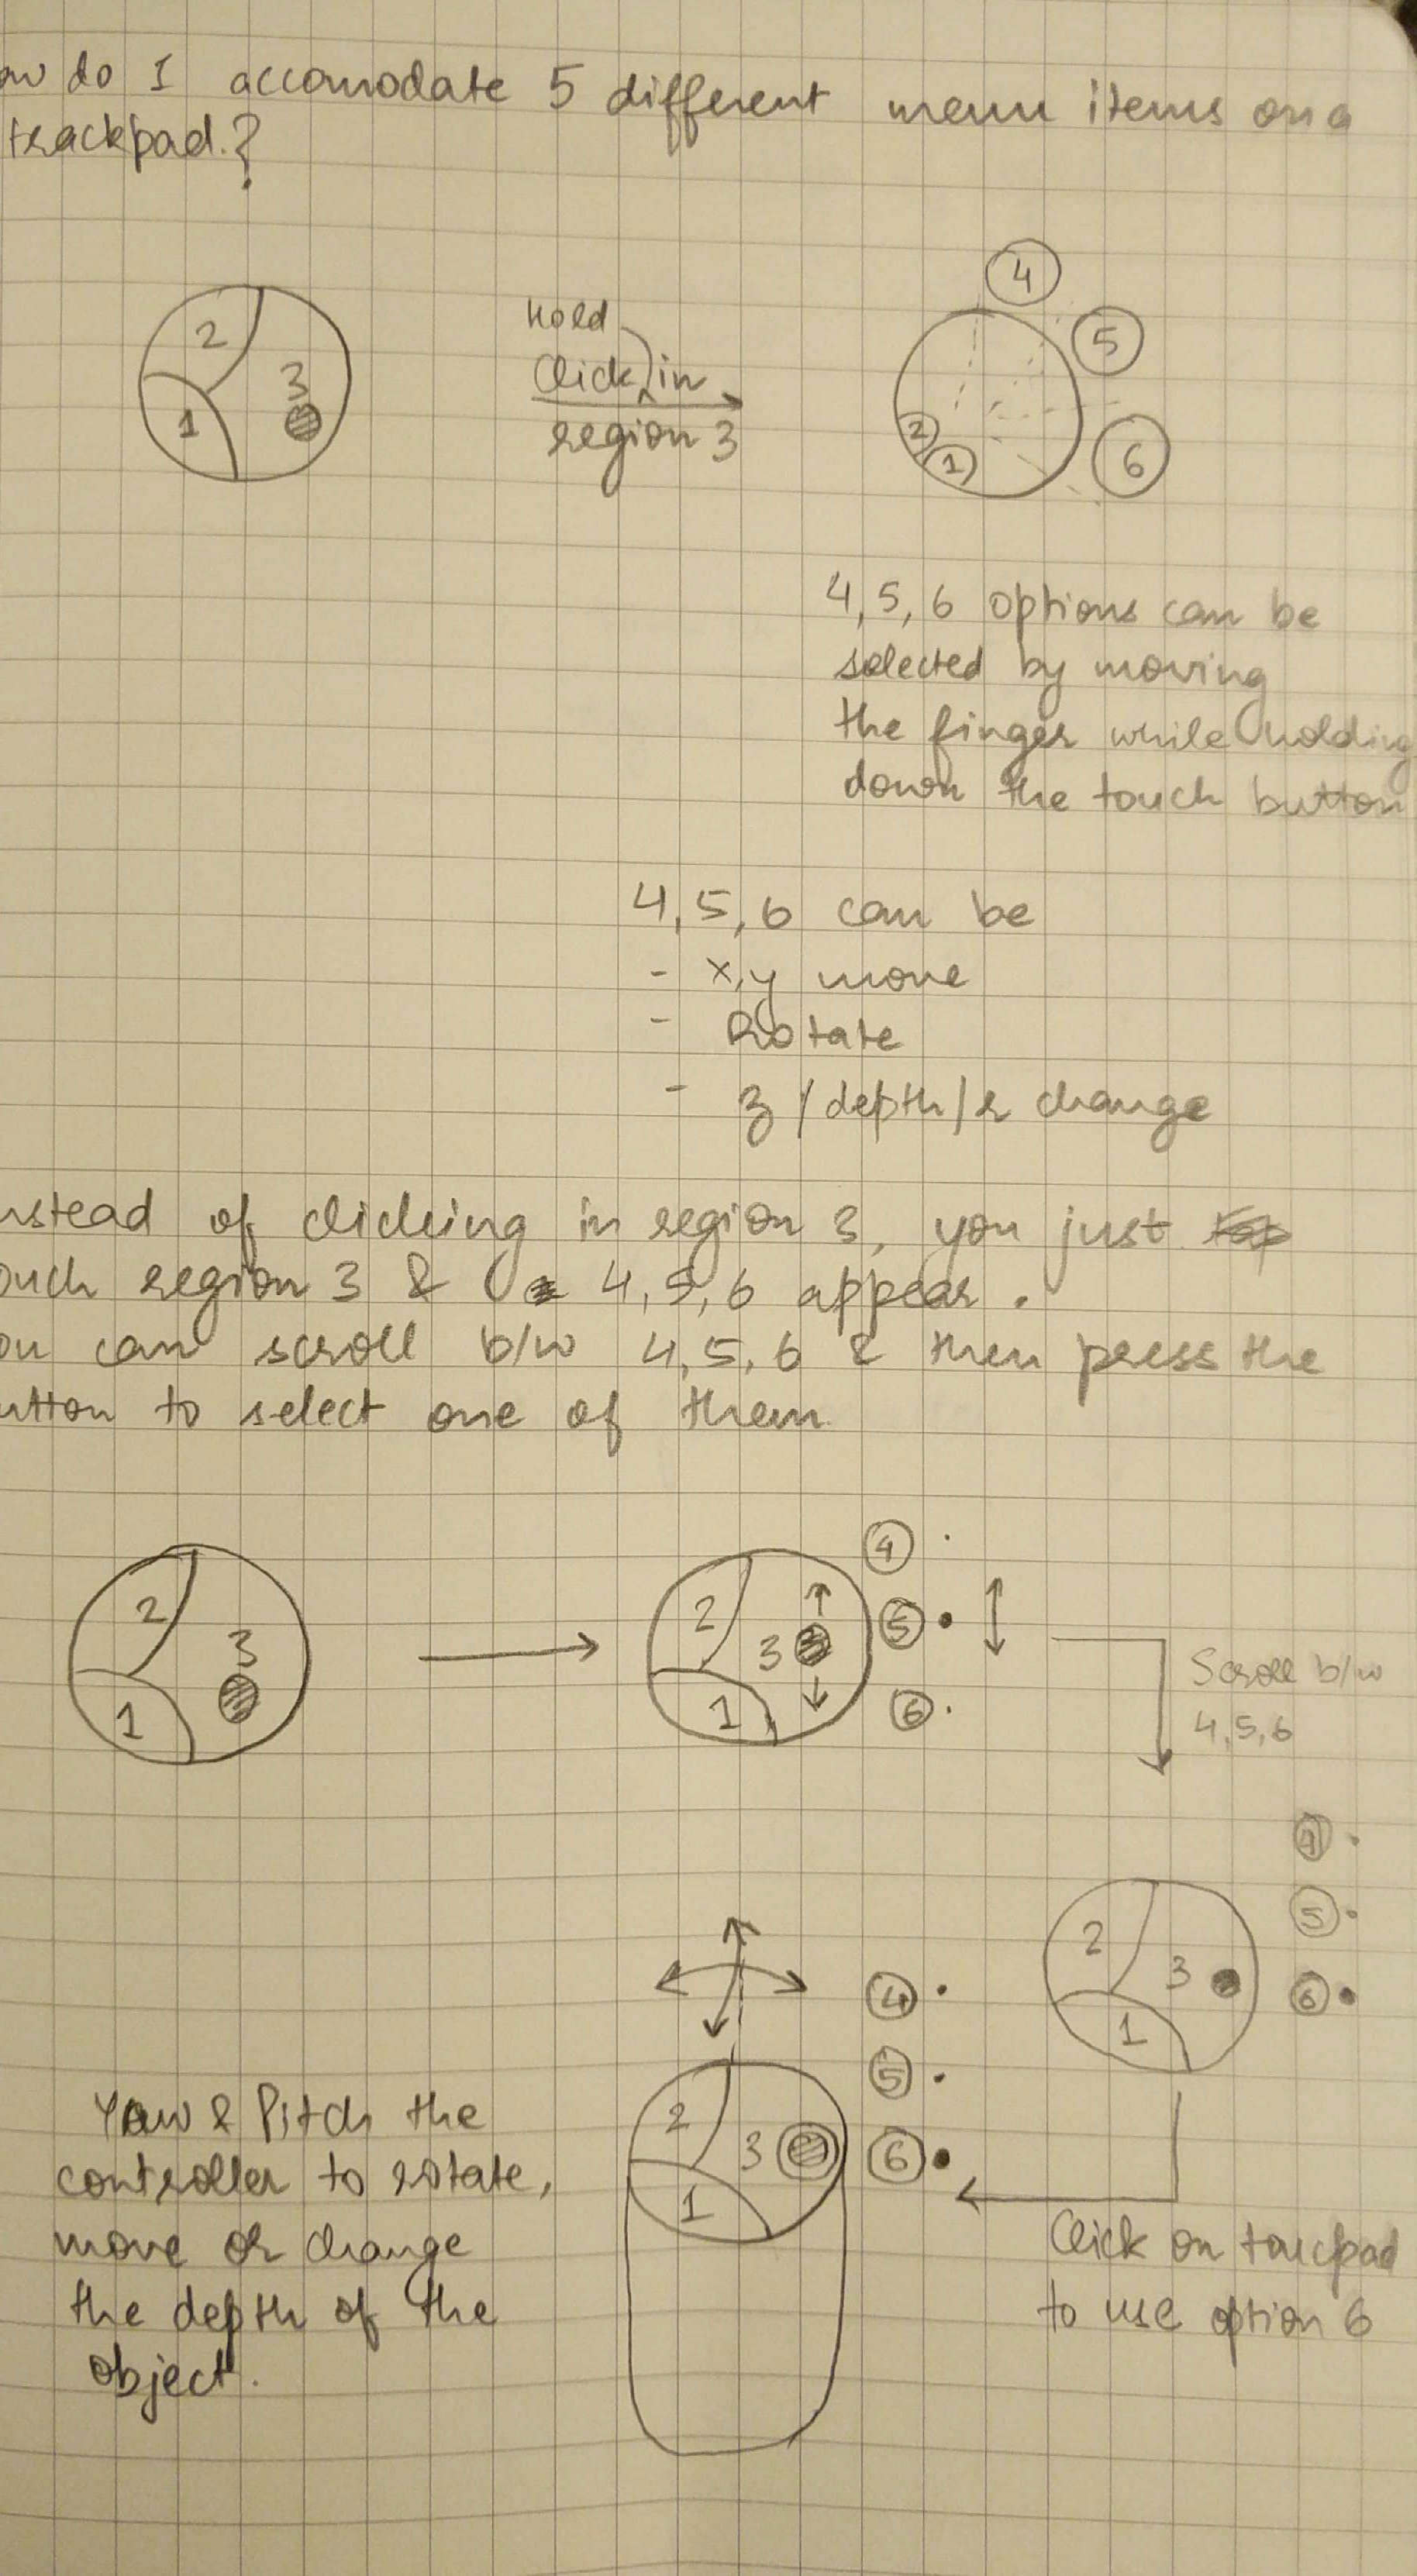 ow do I accomodate 5 different menu items on a
trackpad.?
2
3
1
Hold
Click in
region 3
4
5
6
2
1
4,5,6 options can be
selected by moving
the finger while holding
down the touch button
4,5,6 can be
- x,y move
- Rotate
- z/depth/r change
nstead of clicking in region 3, you just
ouch region 3 & 4,5,6 appear.
ou can scroll b/w 4,5,6 & then press the
utton to select one of them
2
3
1
2
3
1
4
5
6
Scroll b/w
4,5,6
2
3
1
4
5
6
2
3
1
4
5
6
Yaw & Pitch the
controller to rotate,
move or change
the depth of the
object.
Click on toucpad
to use option 6